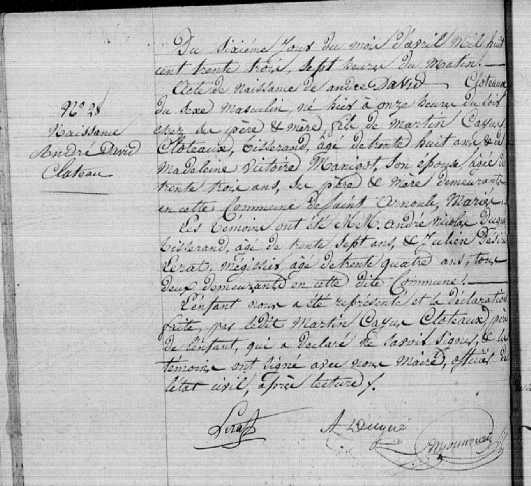 Du sixième Jour du mois d'avril Mil huit
cent trente trois, sept heures du Matin. —
Acte de Naissance de andré David Cloteaux
du sexe masculin, né hier à onze heures du soir
chez de père & mère, fils de Martin Cayus
Cloteaux, Tisserand, âgé de trente huit ans, & de
Madeleine Victoire Manigot, son épouse âgée de
trente trois ans, père & mère demeurants
en cette Commune de Saint Arnoult,
Les témoins ont été M.M. André Nicolas
Tisserand, âgé de trente sept ans, & Julien Désiré
Lerat, Mégissier, âgé de trente quatre ans, tous
deux demeurants en cette dite Commune. —
L'enfant nous a été représenté et la déclaration
faite, par ledit Martin Cayus Cloteaux, père
de l'enfant, qui a déclaré ne savoir signer, & les
témoins ont signé avec nous Maire, officier de
l'état civil, après lecture.
N° 28
Naissance
André David
Clateau
Lerat